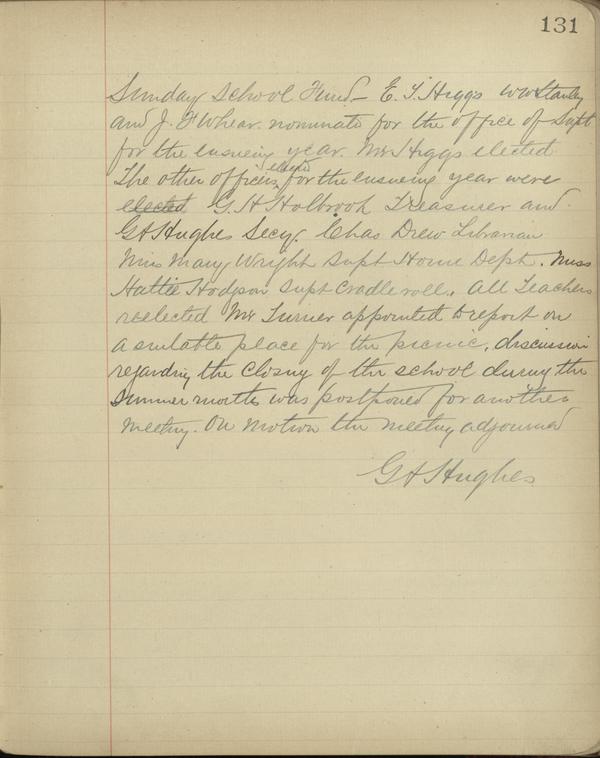 131
Sunday School Fund - E. T. Higgs W W Stanley
and J. F Whear. nominate for the office of Supt
for the ensueing year. Mr Higgs elected
The other officers elected for the ensueing year were
elected G. H Holbrook Treasurer and
G H Hughes Secy. Chas Drew Librarian
Miss Mary Wright Supt Home Dept. Miss
Hattie Hodgson Supt Cradle roll. All Teachers
reelected Mr Turner appointed to report on
a suitable place for the picnic. discussion
regarding the closing of the school during the
Summer months was postponed for another
meeting. On motion the meeting adjourned
G H Hughes